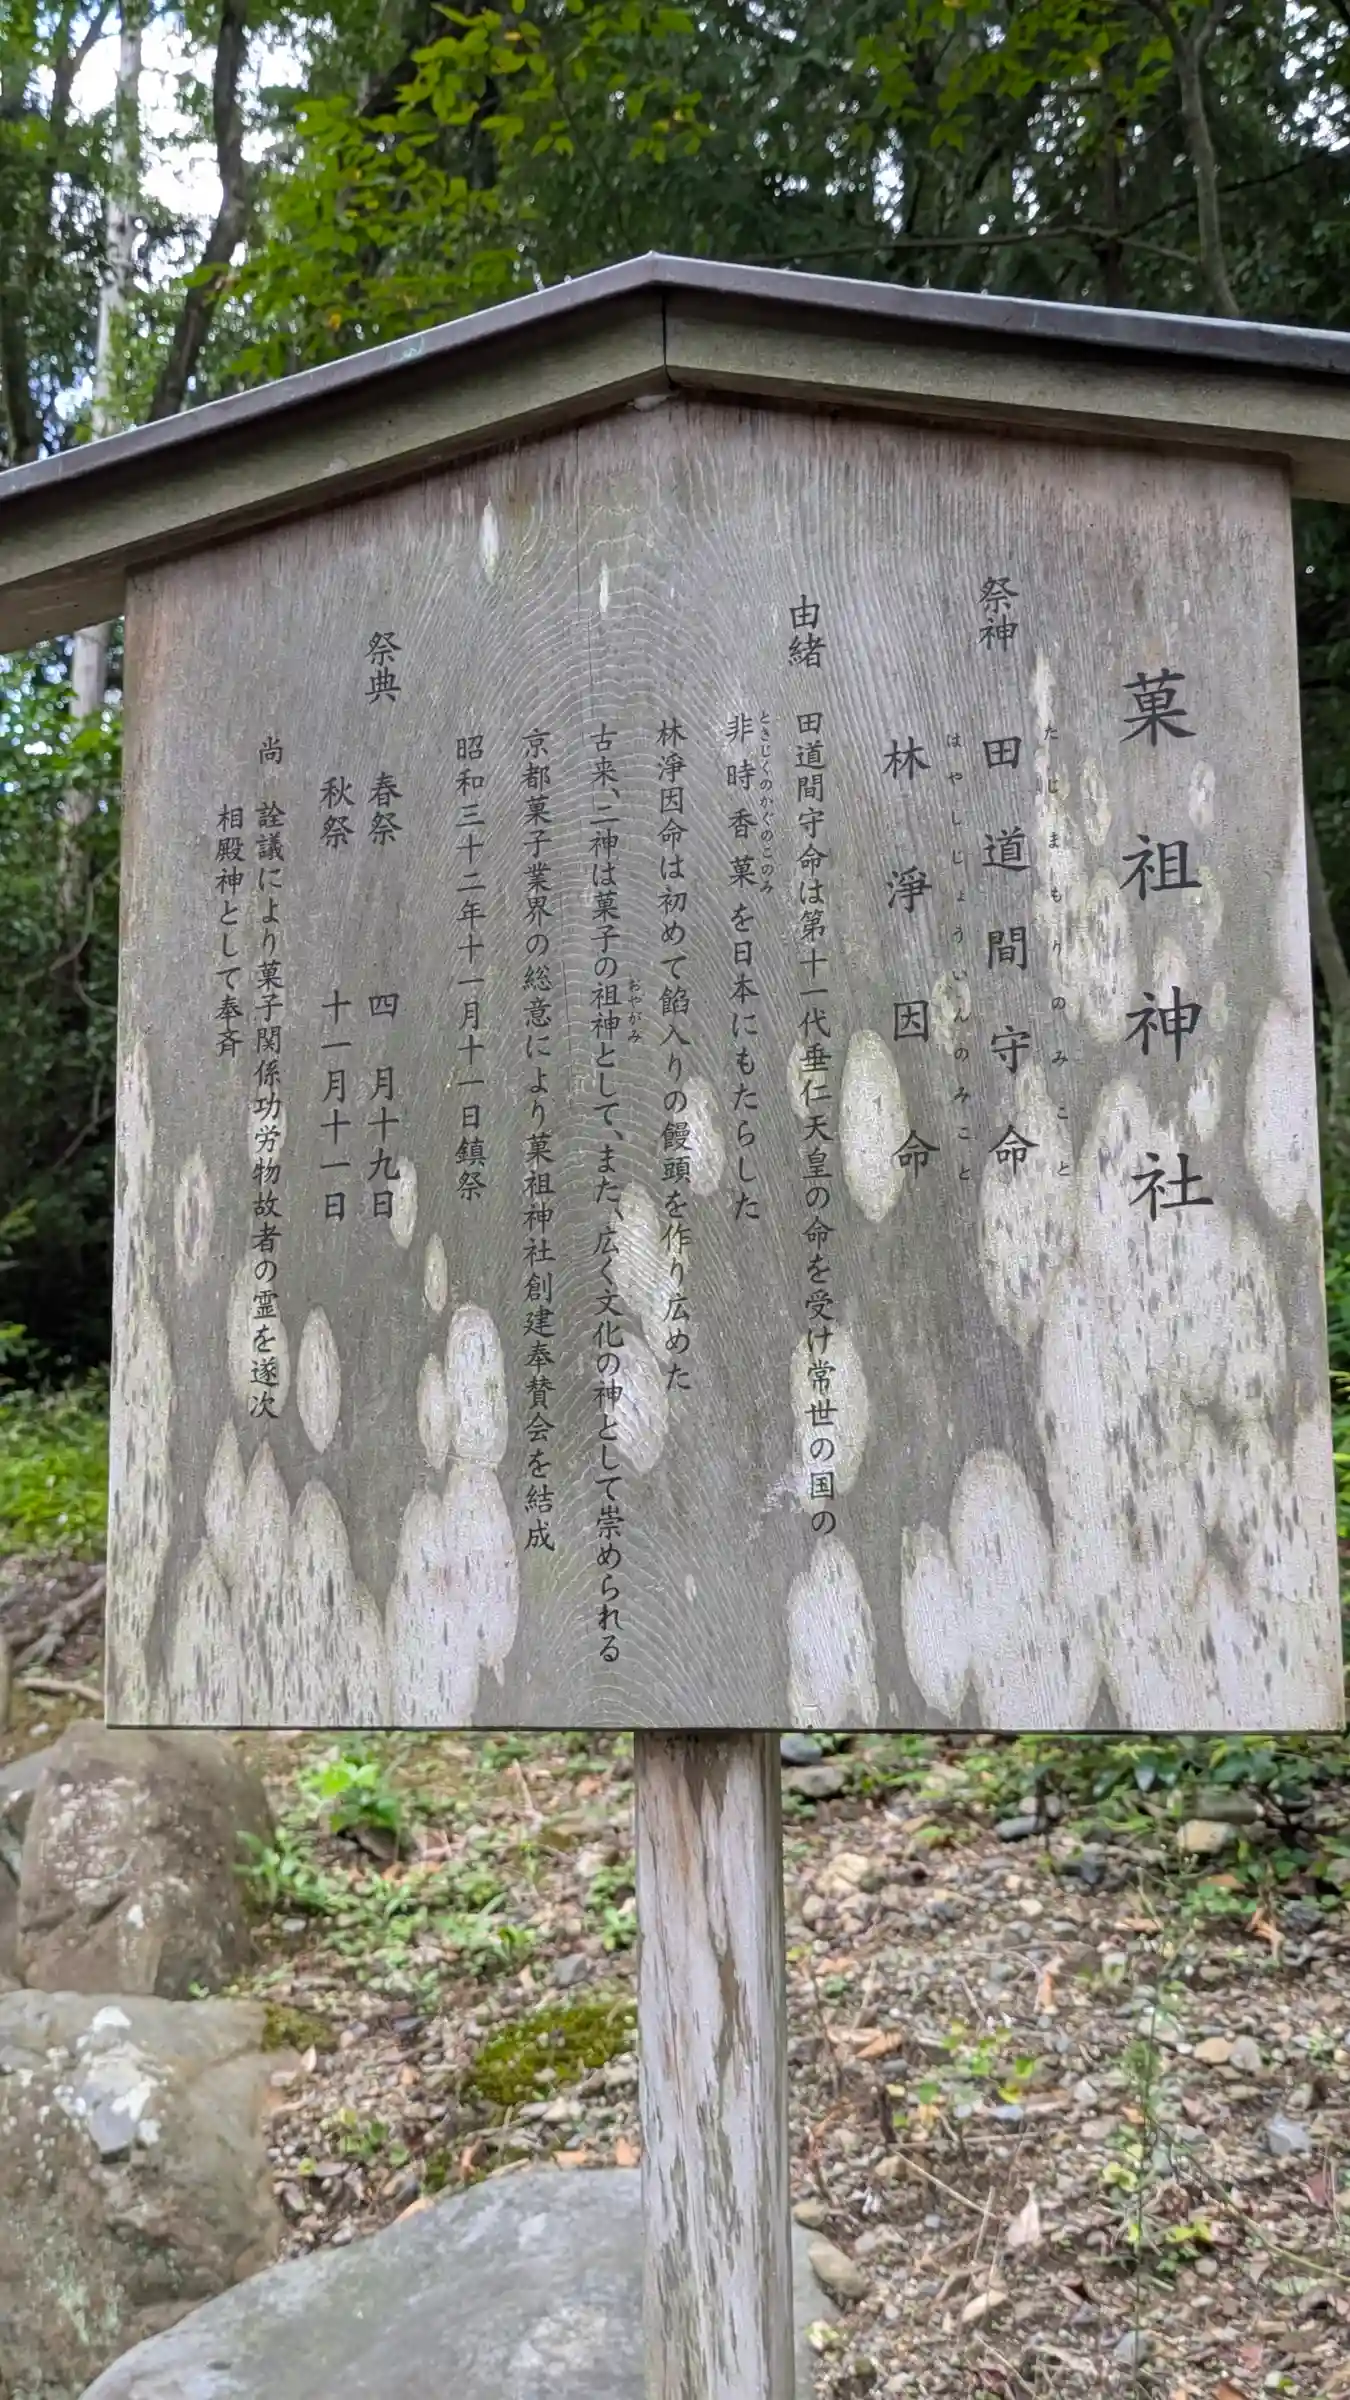 菓祖神社
祭神 田道間守命
たじまもりのみこと
林淨因命
はやしじょういんのみこと
由緒 田道間守命は第十一代垂仁天皇の命を受け常世の国の
非時香菓を日本にもたらした
ときじくのかぐのこのみ
林淨因命は初めて餡入りの饅頭を作り広めた
古来、二神は菓子の祖神として、また、広く文化の神として崇められる
おやがみ
京都菓子業界の総意により菓祖神社創建奉賛会を結成
昭和三十二年十一月十一日鎮祭
祭典 春祭 四月十九日
秋祭 十一月十一日
尚 詮議により菓子関係功労物故者の霊を遂次
相殿神として奉斉